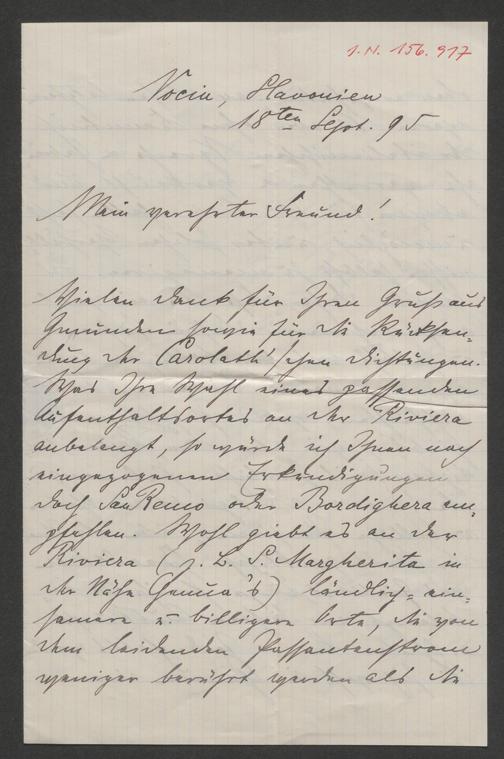 I.N. 156.917
Vocin, Slavonien
18ten Sept. 95
Mein verehrter Freund!
Vielen Dank für Ihren Gruß aus
Gmunden sowie für die Rücksen-
dung der Carolath'schen Dichtungen.
Was Ihre Wahl eines passenden
Aufenthaltsortes an der Riviera
anbelangt, so würde ich Ihnen nach
eingezogenen Erkundigungen
doch San Remo oder Bordighera em-
pfehlen. Wohl giebt es an der
Riviera (z. B. S. Margherita in
der Nähe Genua's) ländlich-ein-
samere u. billigere Orte, die von
dem leidenden Passantenstrom
weniger berührt werden als die